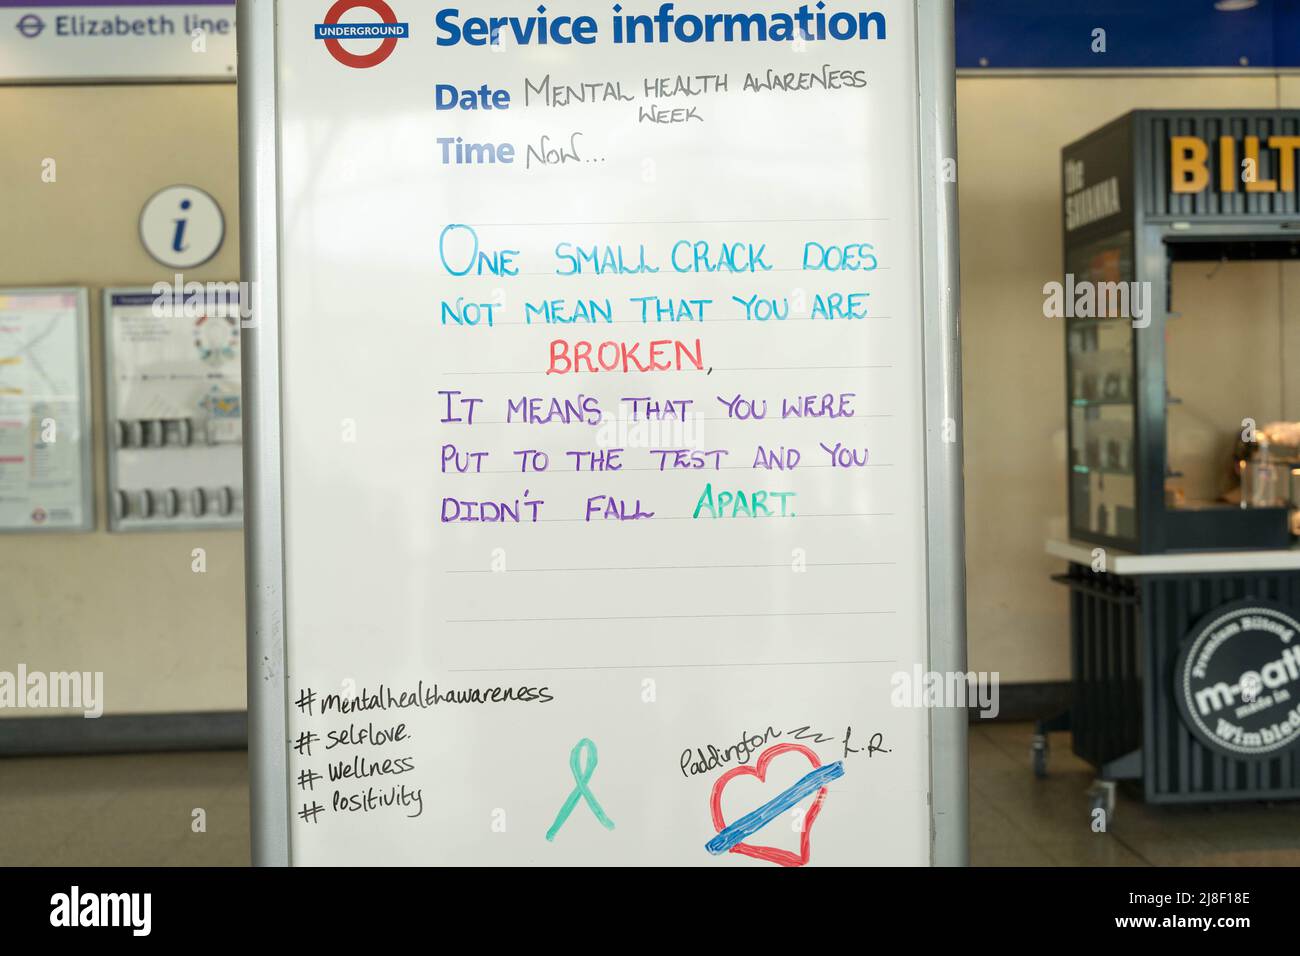 Elizabeth line
UNDERGROUND
Service information
Date MENTAL HEALTH AWARENESS
WEEK
Time NOW...
i
ONE SMALL CRACK DOES
NOT MEAN THAT YOU ARE
BROKEN,
IT MEANS THAT YOU WERE
PUT TO THE TEST AND YOU
DIDN'T FALL APART.
#mentalhealthawareness
#selflove.
#wellness
#Positivity
Paddington
L.R.
the
SAVANNA
BILT
Premium Biltong
m-eat
made in
Wimbledo
alamy
alamy
Image ID: 2J8F18E
www.alamy.com